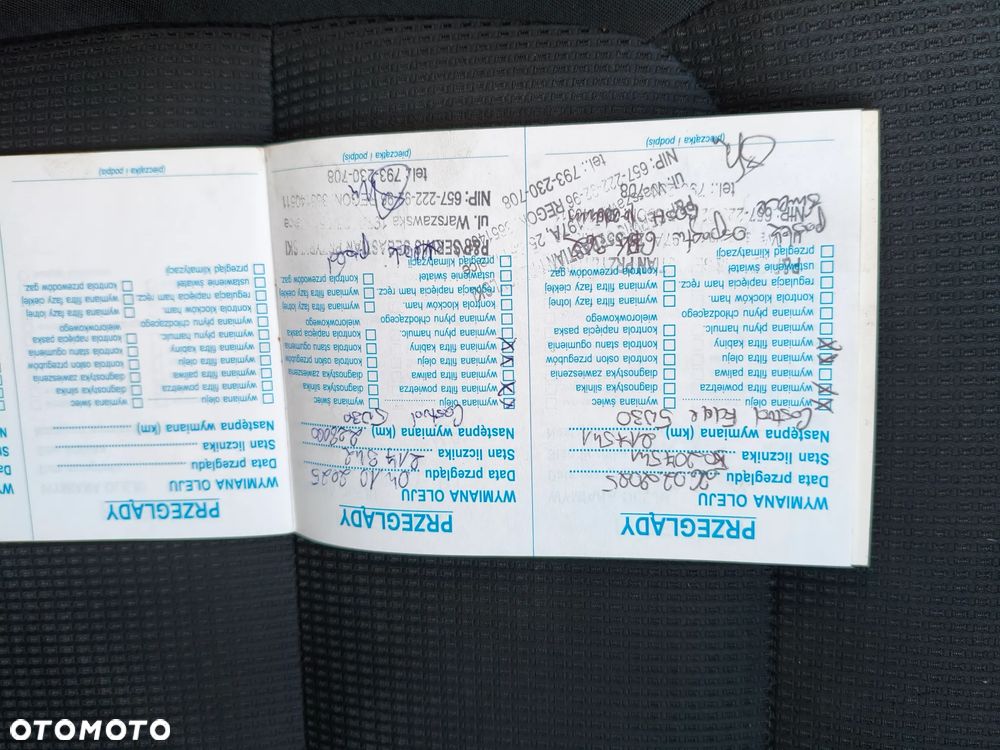 PRZEGLĄDY
WYMIANA OLEJU
Data przeglądu 26.02.2025
Stan licznika
Następna wymiana (km) 217541
Castrol Edge 5W30
wymiana oleju
wymiana świec
wymiana filtra powietrza
diagnostyka silnika
wymiana filtra paliwa
diagnostyka zawieszenia
wymiana filtra oleju
kontrola osłon przegubów
wymiana filtra kabiny
kontrola stanu ogumienia
wymiana płynu hamulc.
kontrola napięcia paska
wielorowkowego
wymiana płynu chłodzącego
kontrola klocków ham.
wymiana filtra fazy lotnej
regulacja napięcia ham. ręcz.
wymiana filtra fazy ciekłej
ustawienie świateł
kontrola przewodów gaz.
przegląd klimatyzacji
tel.: 793-230-708
(pieczątka i podpis)
PRZEGLĄDY
WYMIANA OLEJU
Data przeglądu 04.10.2025
Stan licznika 214 342
Następna wymiana (km) 229000
Castrol 5W30
wymiana oleju
wymiana świec
wymiana filtra powietrza
diagnostyka silnika
wymiana filtra paliwa
diagnostyka zawieszenia
wymiana filtra oleju
kontrola osłon przegubów
wymiana filtra kabiny
kontrola stanu ogumienia
wymiana płynu hamulc.
kontrola napięcia paska
wielorowkowego
wymiana płynu chłodzącego
kontrola klocków ham.
wymiana filtra fazy lotnej
regulacja napięcia ham. ręcz.
wymiana filtra fazy ciekłej
ustawienie świateł
kontrola przewodów gaz.
przegląd klimatyzacji
ul. Warszawska
NIP: 657-222-92-96 REGON
tel.: 793-230-708
(pieczątka i podpis)
PRZEGLĄDY
WYMIANA OLEJU
Data przeglądu
Stan licznika
Następna wymiana (km)
wymiana oleju
wymiana świec
wymiana filtra powietrza
diagnostyka silnika
wymiana filtra paliwa
diagnostyka zawieszenia
wymiana filtra oleju
kontrola osłon przegubów
wymiana filtra kabiny
kontrola stanu ogumienia
wymiana płynu hamulc.
kontrola napięcia paska
wielorowkowego
wymiana płynu chłodzącego
kontrola klocków ham.
wymiana filtra fazy lotnej
regulacja napięcia ham. ręcz.
wymiana filtra fazy ciekłej
ustawienie świateł
kontrola przewodów gaz.
przegląd klimatyzacji
(pieczątka i podpis)
OTOMOTO